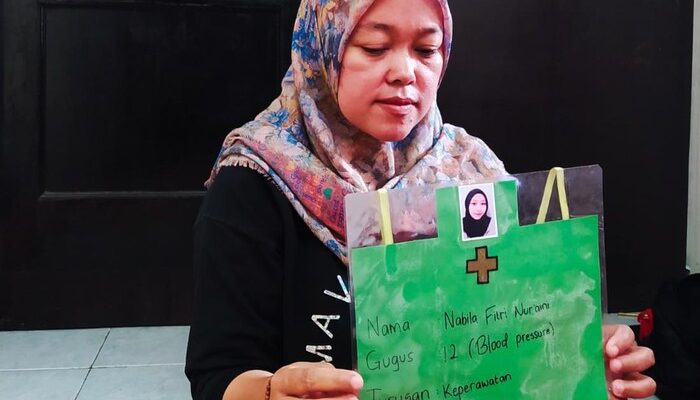 Nama Nabila Fitri Nur'aini
Gugus 12 (Blood pressure)
Jurusan : Keperawatan
MAK